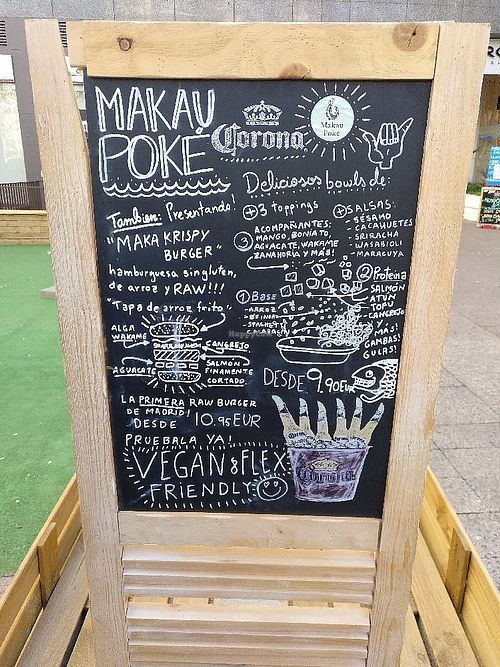 MAKAU
POKÉ
Corona
Makau
Poké
Deliciosos bowls de:
Tambien: Presentando!
"MAKA KRISPY
BURGER"
hamburguesa sin gluten,
de arroz y RAW!!!
"Tapa de arroz frito"
ALGA
WAKAME
AGUACATE
CANGREJO
SALMÓN
FINAMENTE
CORTADO.
LA PRIMERA RAW BURGER
DE MADRID!
DESDE 10.95 EUR
PRUEBALA YA!
VEGAN & FLEX
FRIENDLY
+3 toppings
3 ACOMPAÑANTES:
MANGO, BONIATO,
AGUACATE, WAKAME
ZANAHORIA Y MÁS!
+ SALSAS:
SÉSAMO
CACAHUETES
SRIRACHA
WASABIOLI
MARACUYA
1 Base
-ARROZ
-QUINOA
-SPAGHETTI
CALABACÍN
2 Proteina
SALMÓN
ATÚN
TOFU
CANGREJO
Y
MÁS!
GAMBAS!
GULAS!
DESDE 9.90EUR
Corona